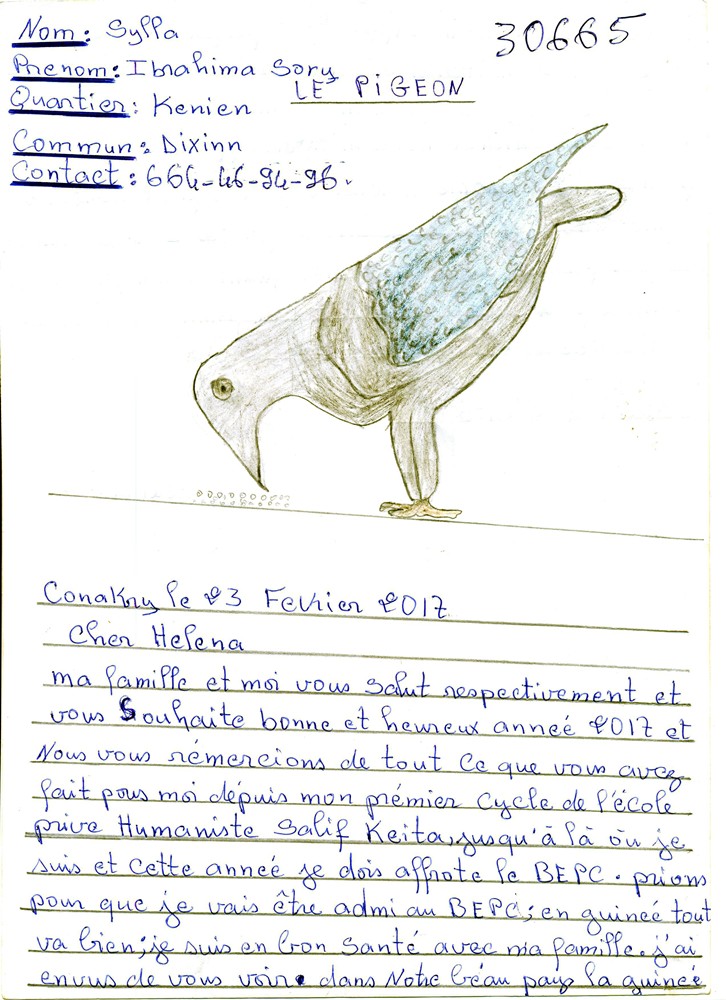 Nom: Sylla
30665
Prenom: Ibrahima Sory
LE PiGEON
Quantier: Kenien
Commun: Dixinn
Contact: 664-46-94-96.
Conakry le 23 Fevrier 2017
Cher Helena
ma famille et moi vous salut respectivement et
vous Souhaite bonne et heureux anneé 2017 et
Nous vous rémercions de tout Ce que vous avez
fait pous moi dépuis mon prémier Cycle de l'école
prive Humaniste Salif Keita, jusqu'à là où je
suis et Cette anneé je dois affrote le BEPC. prions
pour que je vais être admi au BEPC; en guineé tout
va bien; je suis en bon Santé avec ma famille. j'ai
envus de vous voir. dans Notre béau pays la guineé